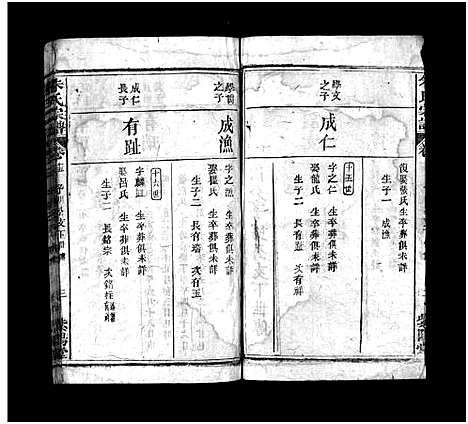 復娶張氏生卒葬俱未詳
生子一 成漁
十五世
學文之子
成仁
字之仁 生卒葬俱未詳
娶龍氏 生卒葬俱未詳
生子二 長有趾 次有祥
之子
成漁
字之漁 生卒葬俱未詳
娶瞿氏 生卒葬俱未詳
生子二 長有培 次有玉
十六世
成仁長子
有趾
字麟趾 生卒葬俱未詳
娶呂氏 生卒葬俱未詳
生子二 長銘宗 次銘
朱氏宗譜
紫陽堂